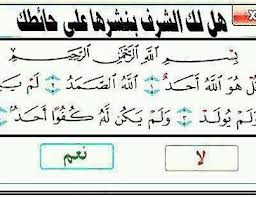 هل لك الشرف بنشرها على حائطك
بِسْمِ اللَّهِ الرَّحْمَٰنِ الرَّحِيمِ
قُلْ هُوَ اللَّهُ أَحَدٌ ١ اللَّهُ الصَّمَدُ ٢ لَمْ يَـ
وَلَمْ يُولَدْ ٣ وَلَمْ يَكُن لَّهُ كُفُوًا أَحَـ
لا
نعم